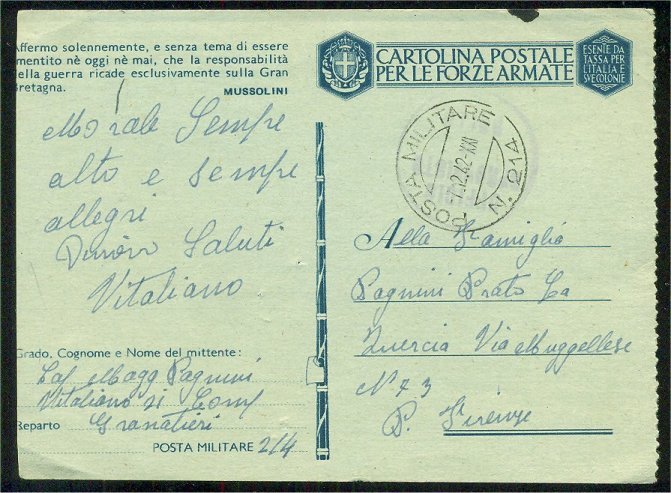 Affermo solennemente, e senza tema di essere
mentito nè oggi nè mai, che la responsabilità
della guerra ricade esclusivamente sulla Gran
Bretagna.
MUSSOLINI
Morale Sempre
alto e sempre
allegri
Saluti
Vitaliano
Grado, Cognome e Nome del mittente:
Magg Pagnini
Vitaliano 21 Comp
Reparto Granatieri
POSTA MILITARE 214
CARTOLINA POSTALE
PER LE FORZE ARMATE
ESENTE DA
TASSA PER
L'ITALIA E
SVE COLONIE
POSTA MILITARE
7.12.42-XXI
N. 214
Alla Famiglia
Pagnini Prato La
Quercia Via Muggellese
N 73
P. Firenze